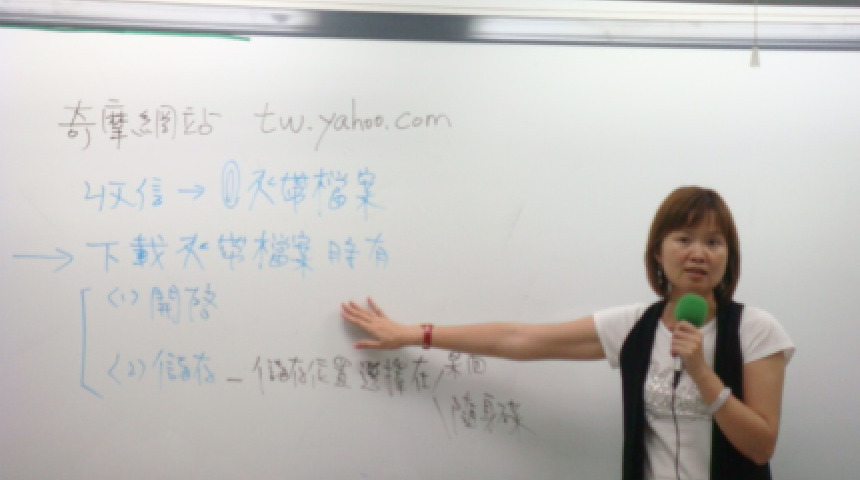 奇摩網站 tw.yahoo.com
收信→ 夾帶檔案
→ 下載夾帶檔案時有
(1) 開啓
(2) 儲存 - 儲存位置選擇在/桌面
\隨身碟